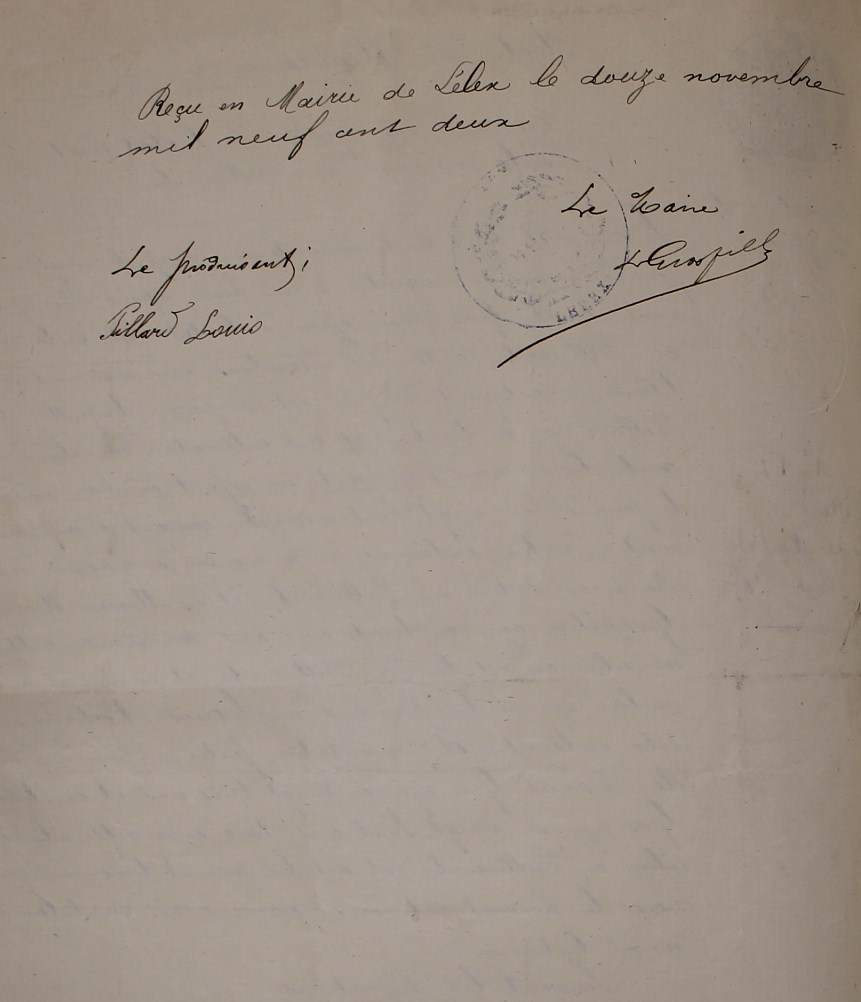 Reçu en Mairie de Lélex le douze novembre
mil neuf cent deux
Le Maire
Le produisant,
Grosfill
Pillard Louis
LELEX